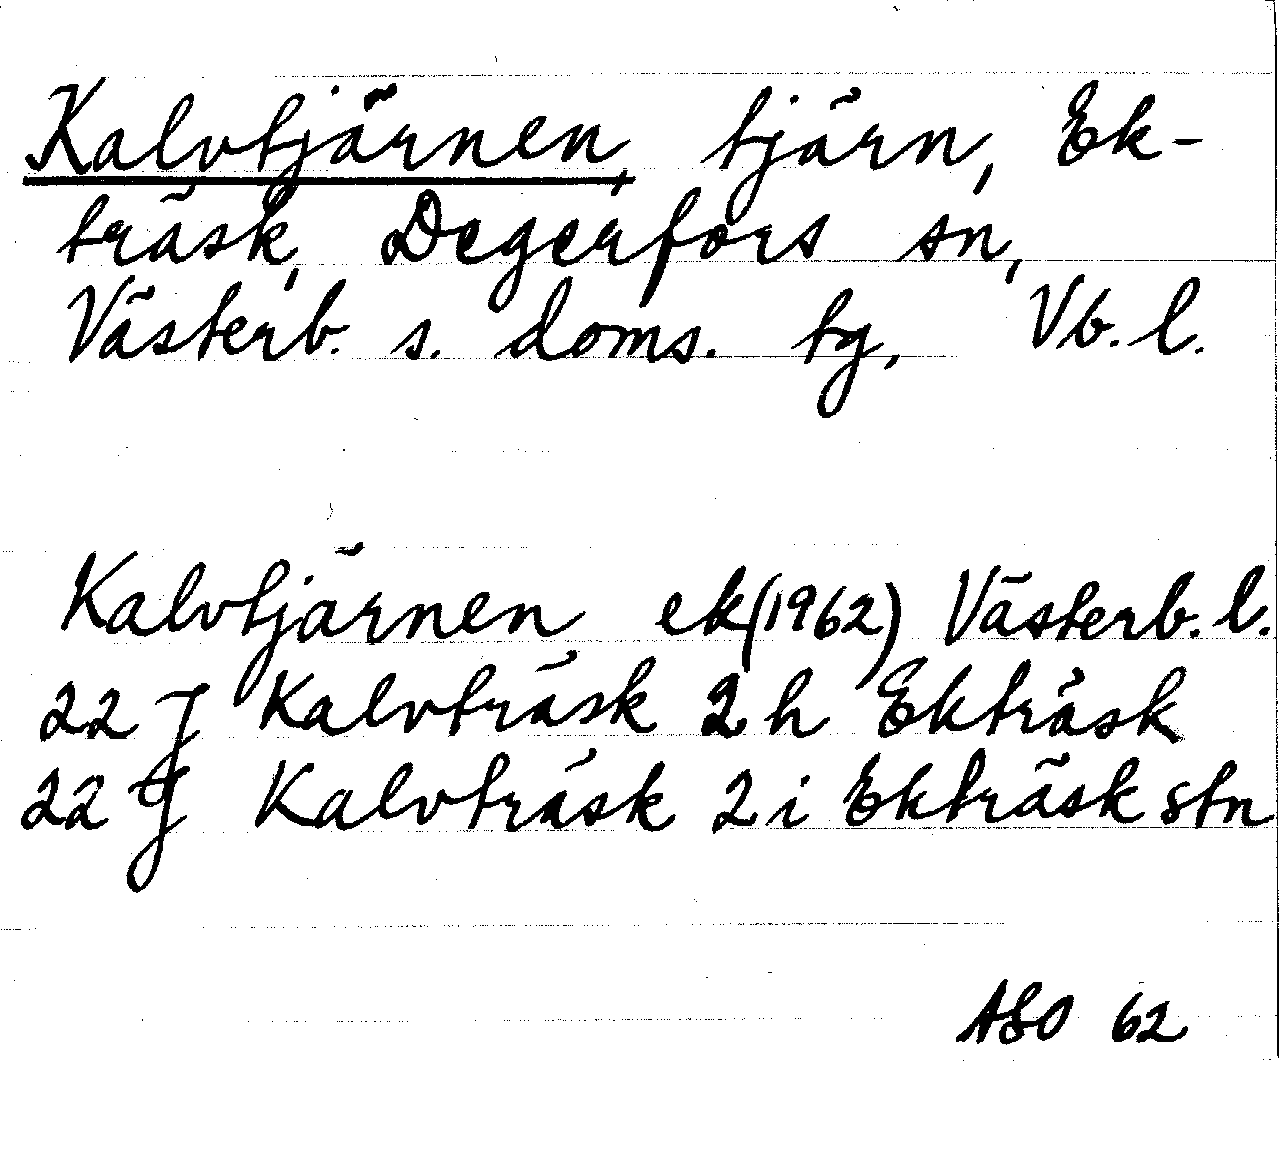 Kalvtjärnen, tjärn, Ek-
träsk, Degerfors sn,
Västerb. s. doms. tg, Vb. l.
Kalvtjärnen ek (1962) Västerb. l.
22 J Kalvträsk 2 h Ekträsk
22 J Kalvträsk 2 i Ekträsk stn
ASO 62